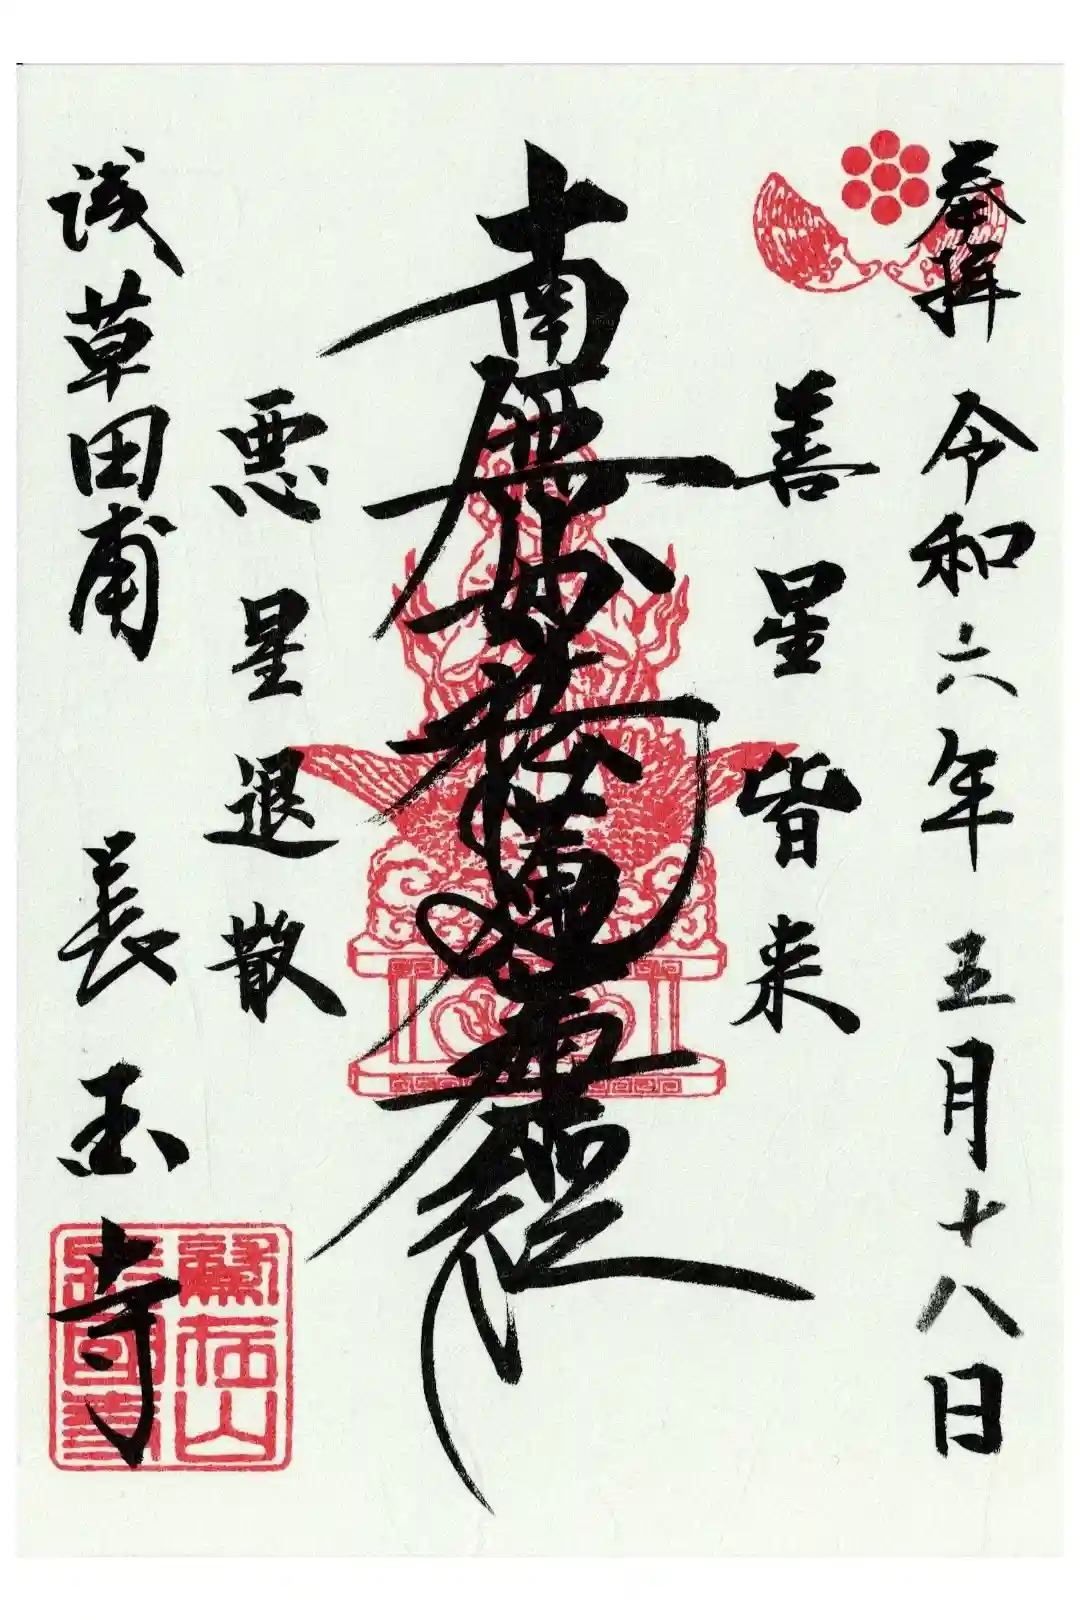 奉拝 令和六年五月十八日
善星皆来
南無妙法蓮華経
悪星退散
浅草田甫 長国寺
鷲在山
長國寺